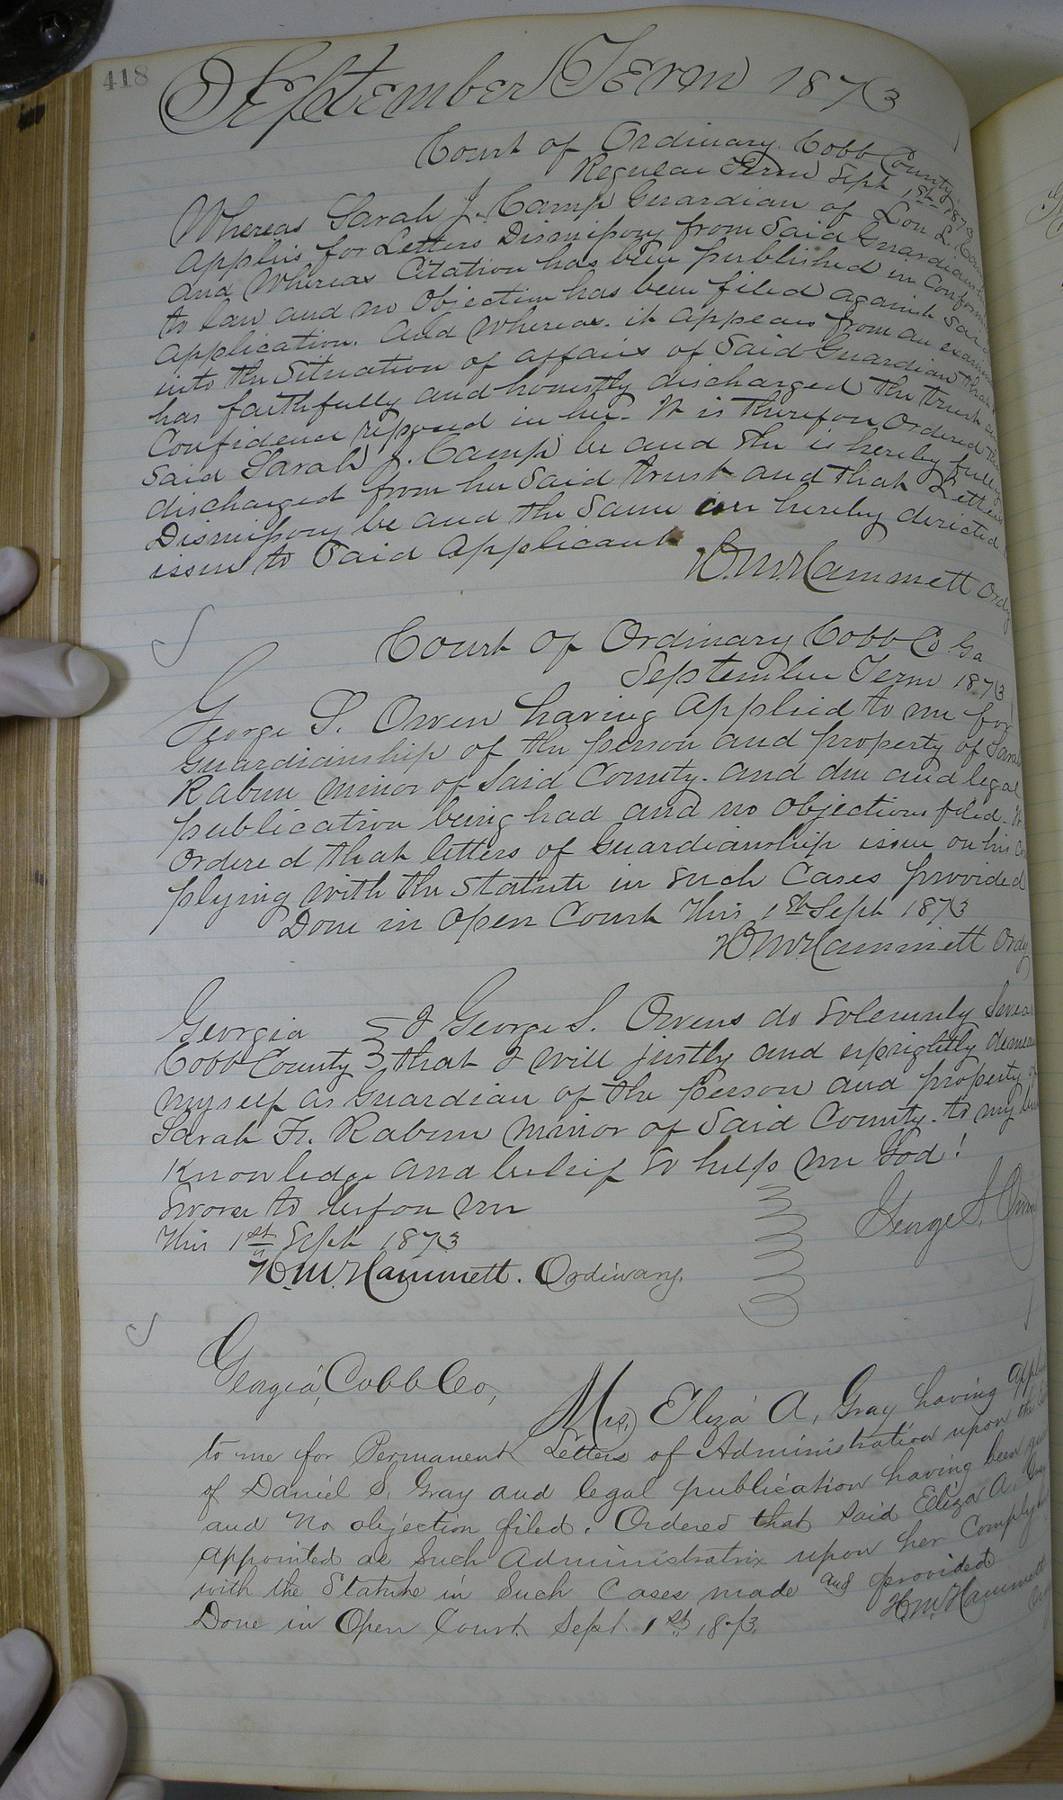 418
September Term 1873
Court of Ordinary Cobb County
Regular Term Sept 1st 1873
Whereas Sarah J. Camp Guardian of Lon L.
applies for Letters Dismissory from Said Guardianship
and Whereas Citation has been published in Conformity
to law and no Objection has been filed against Said
application. and whereas it appears from an
into the Situation of affairs of Said Guardian that
has faithfully and honestly discharged the trust and
Confidence reposed in her. It is therefore Ordered that
Said Sarah J. Camp be and She is hereby fully
discharged from her Said trust and that Letters
Dismissory be and the Same are hereby directed
issue to Said Applicant
W. M. Hammett Ordy
Court of Ordinary Cobb Co Ga
September Term 1873
George S. Owen having applied to me for
Guardianship of the person and property of
Rabun minor of Said County. and due and legal
publication being had and no objections filed. It
Ordered that letters of Guardianship issue on his Com
plying with the Statute in Such Cases provided
Done in Open Court this 1st Sept 1873
W M Hammett Ordy
Georgia I George S. Owens do Solemnly Swear
Cobb County that I will justly and uprightly demean
myself as Guardian of the Person and property of
Sarah Fr. Rabun minor of Said County. to my best
Knowledge and beleif So help me God!
Sworn to before me
this 1st Sept 1873 George S. Owens
W. M. Hammett. Ordinary.
Georgia, Cobb Co,
Mrs, Eliza A, Gray having
to me for Permanent Letters of Administration upon the
of Daniel S, Gray and legal publication having been
and no objection filed. Ordered that said Eliza A. Gray
appointed as Such Administratrix upon her Complying
with the Statute in Such Cases made and provided
Done in Open Court Sept 1st 1873. W M Hammett